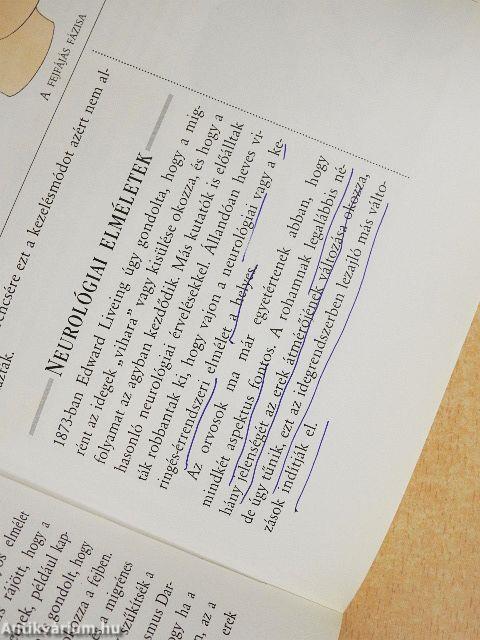 A FEJFÁJÁS FÁZISA
encsére ezt a kezelésmódot azért nem al-
NEUROLÓGIAI ELMÉLETEK
1873-ban Edward Liveing úgy gondolta, hogy a mig-
rént az idegek „vihara” vagy kisülése okozza, és hogy a
folyamat az agyban kezdődik. Más kutatók is előálltak
hasonló neurológiai érvelésekkel. Állandóan heves vi-
ták robbantak ki, hogy vajon a neurológiai vagy a ke-
ringés-errendszeri elmélet a helyes.
Az orvosok ma már egyetértenek abban, hogy
mindkét aspektus fontos. A rohamnak legalábbis né-
hány jelenségét az erek átmérőjének változása okozza,
de úgy tűnik, ezt az idegrendszerben lezajló más válto-
zások indítják el.
os elmélet
rájött, hogy a
ak, például kap-
gondolt, hogy
ozza a fejben.
migrénes
szűkítsék a
smus Dar-
ogy ha a
an, az a
erek
Antikvarium.hu